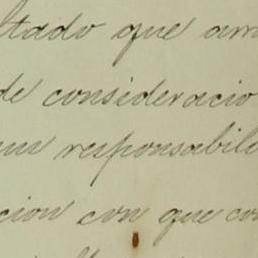 ltado que am
de consideracio
sus responsabili
cion con que con